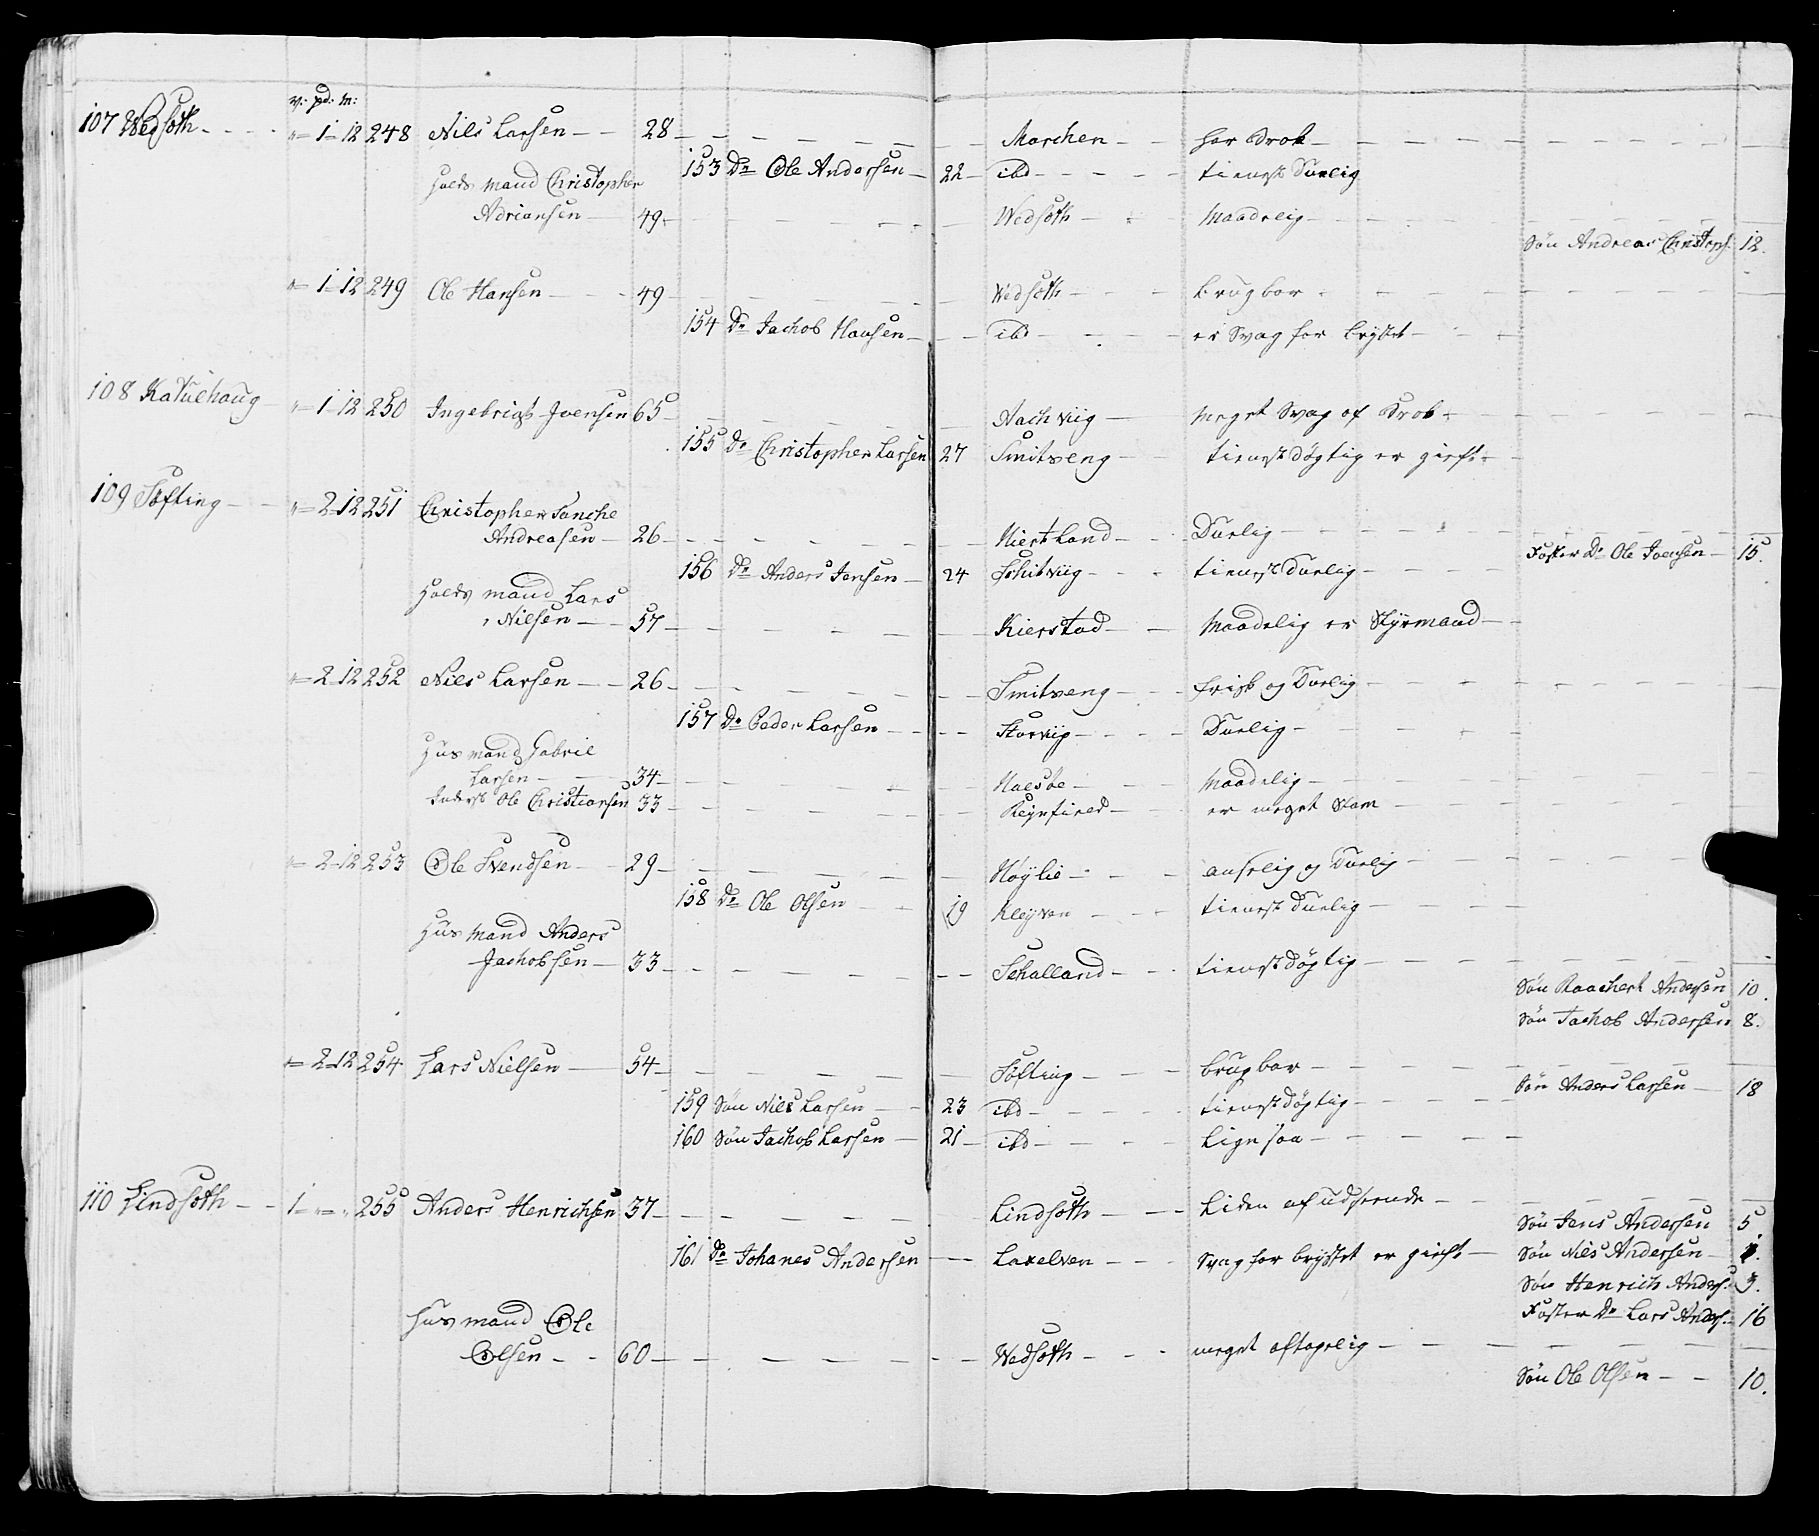 v: pd: m:
107 Wedsøth - - - - „ - 1 - 12 248 Nils Larsen - - 28 - Marchen - - har Brok -
153 Dr Ole Andersen - 22 - ibd - - - - tienest Duelig
Huus mand Christopher
Adriansen - 49 - Wedsøth - - Maadelig -
Søn Andreas Christoph: 12.
„ - 1 - 12 249 Ole Hansen - - - 49 - Wedsøth - - - brugbar -
154 Dr Jachob Hansen - - - ibd - - - - er Svag for brystet -
108 Kalvehaug - „ - 1 - 12 250 Ingebrigt Joensen 65 - Aachviig - meget Svag af Brok -
155 Dr Christopher Larsen 27 Smitseng - - tienestdögtig er gieft -
109 Søfting - - „ - 2 - 12 251 Christopher Tanche
Andreasen - 26 - Kiertland - - Duelig -
Foster Dr Ole Joensen - 15.
156 Dr Anders Jensen - 24 Schitviig - - - tienestduelig -
Huus mand Lars
Nilsen - - 57 - Kierstad - - Maadelig er Styrmand -
„ - 2 - 12 252 Nils Larsen - - 26 - Smitseng - - - frisk og Duelig -
157 Dr Peder Larsen - - - - Storviig - - - - Duelig -
Huus mand Gabriel
Larsen - - 34 - Naesøe - - - Maadelig -
Inderst Ole Christiansen 33 - Reynfiord - - er meget Stam -
„ - 2 - 12 253 Ole Svendsen - - 29 - Høylie - - - anselig og Duelig -
158 Dr Ole Olsen - - 19 Kleyven - - - tienest duelig -
Huus mand Anders
Jachobsen - 33 - Schalland - - - tienestdögtig -
Søn Raachert Andersen 10.
Søn Jachob Andersen 8.
„ - 2 - 12 254 Lars Nielsen - - 54 - Søfting - - - brugbar -
Søn Anders Larsen - 18
159 Søn Nils Larsen - - 23 ibd - - - - tienestdögtig -
160 Søn Jachob Larsen - 21 - ibd - - - - Ligesaa -
110 Lindsøth - - 1 - „ - „ 255 Anders Henrichsen 37 - Lindsøth - - - Liden af udseende -
Søn Jens Andersen 5
161 Dr Johanes Andersen - - Laxelven - - - Svag for brystet er gieft - Søn Nils Andersen - 1.
Søn Henrich Anders: 3.
Foster Dr Lars Anders: 16
Huus mand Ole
Olsen - - 60 - Wedsøth - - - meget aftagelig -
Søn Ole Olsen - - 10.